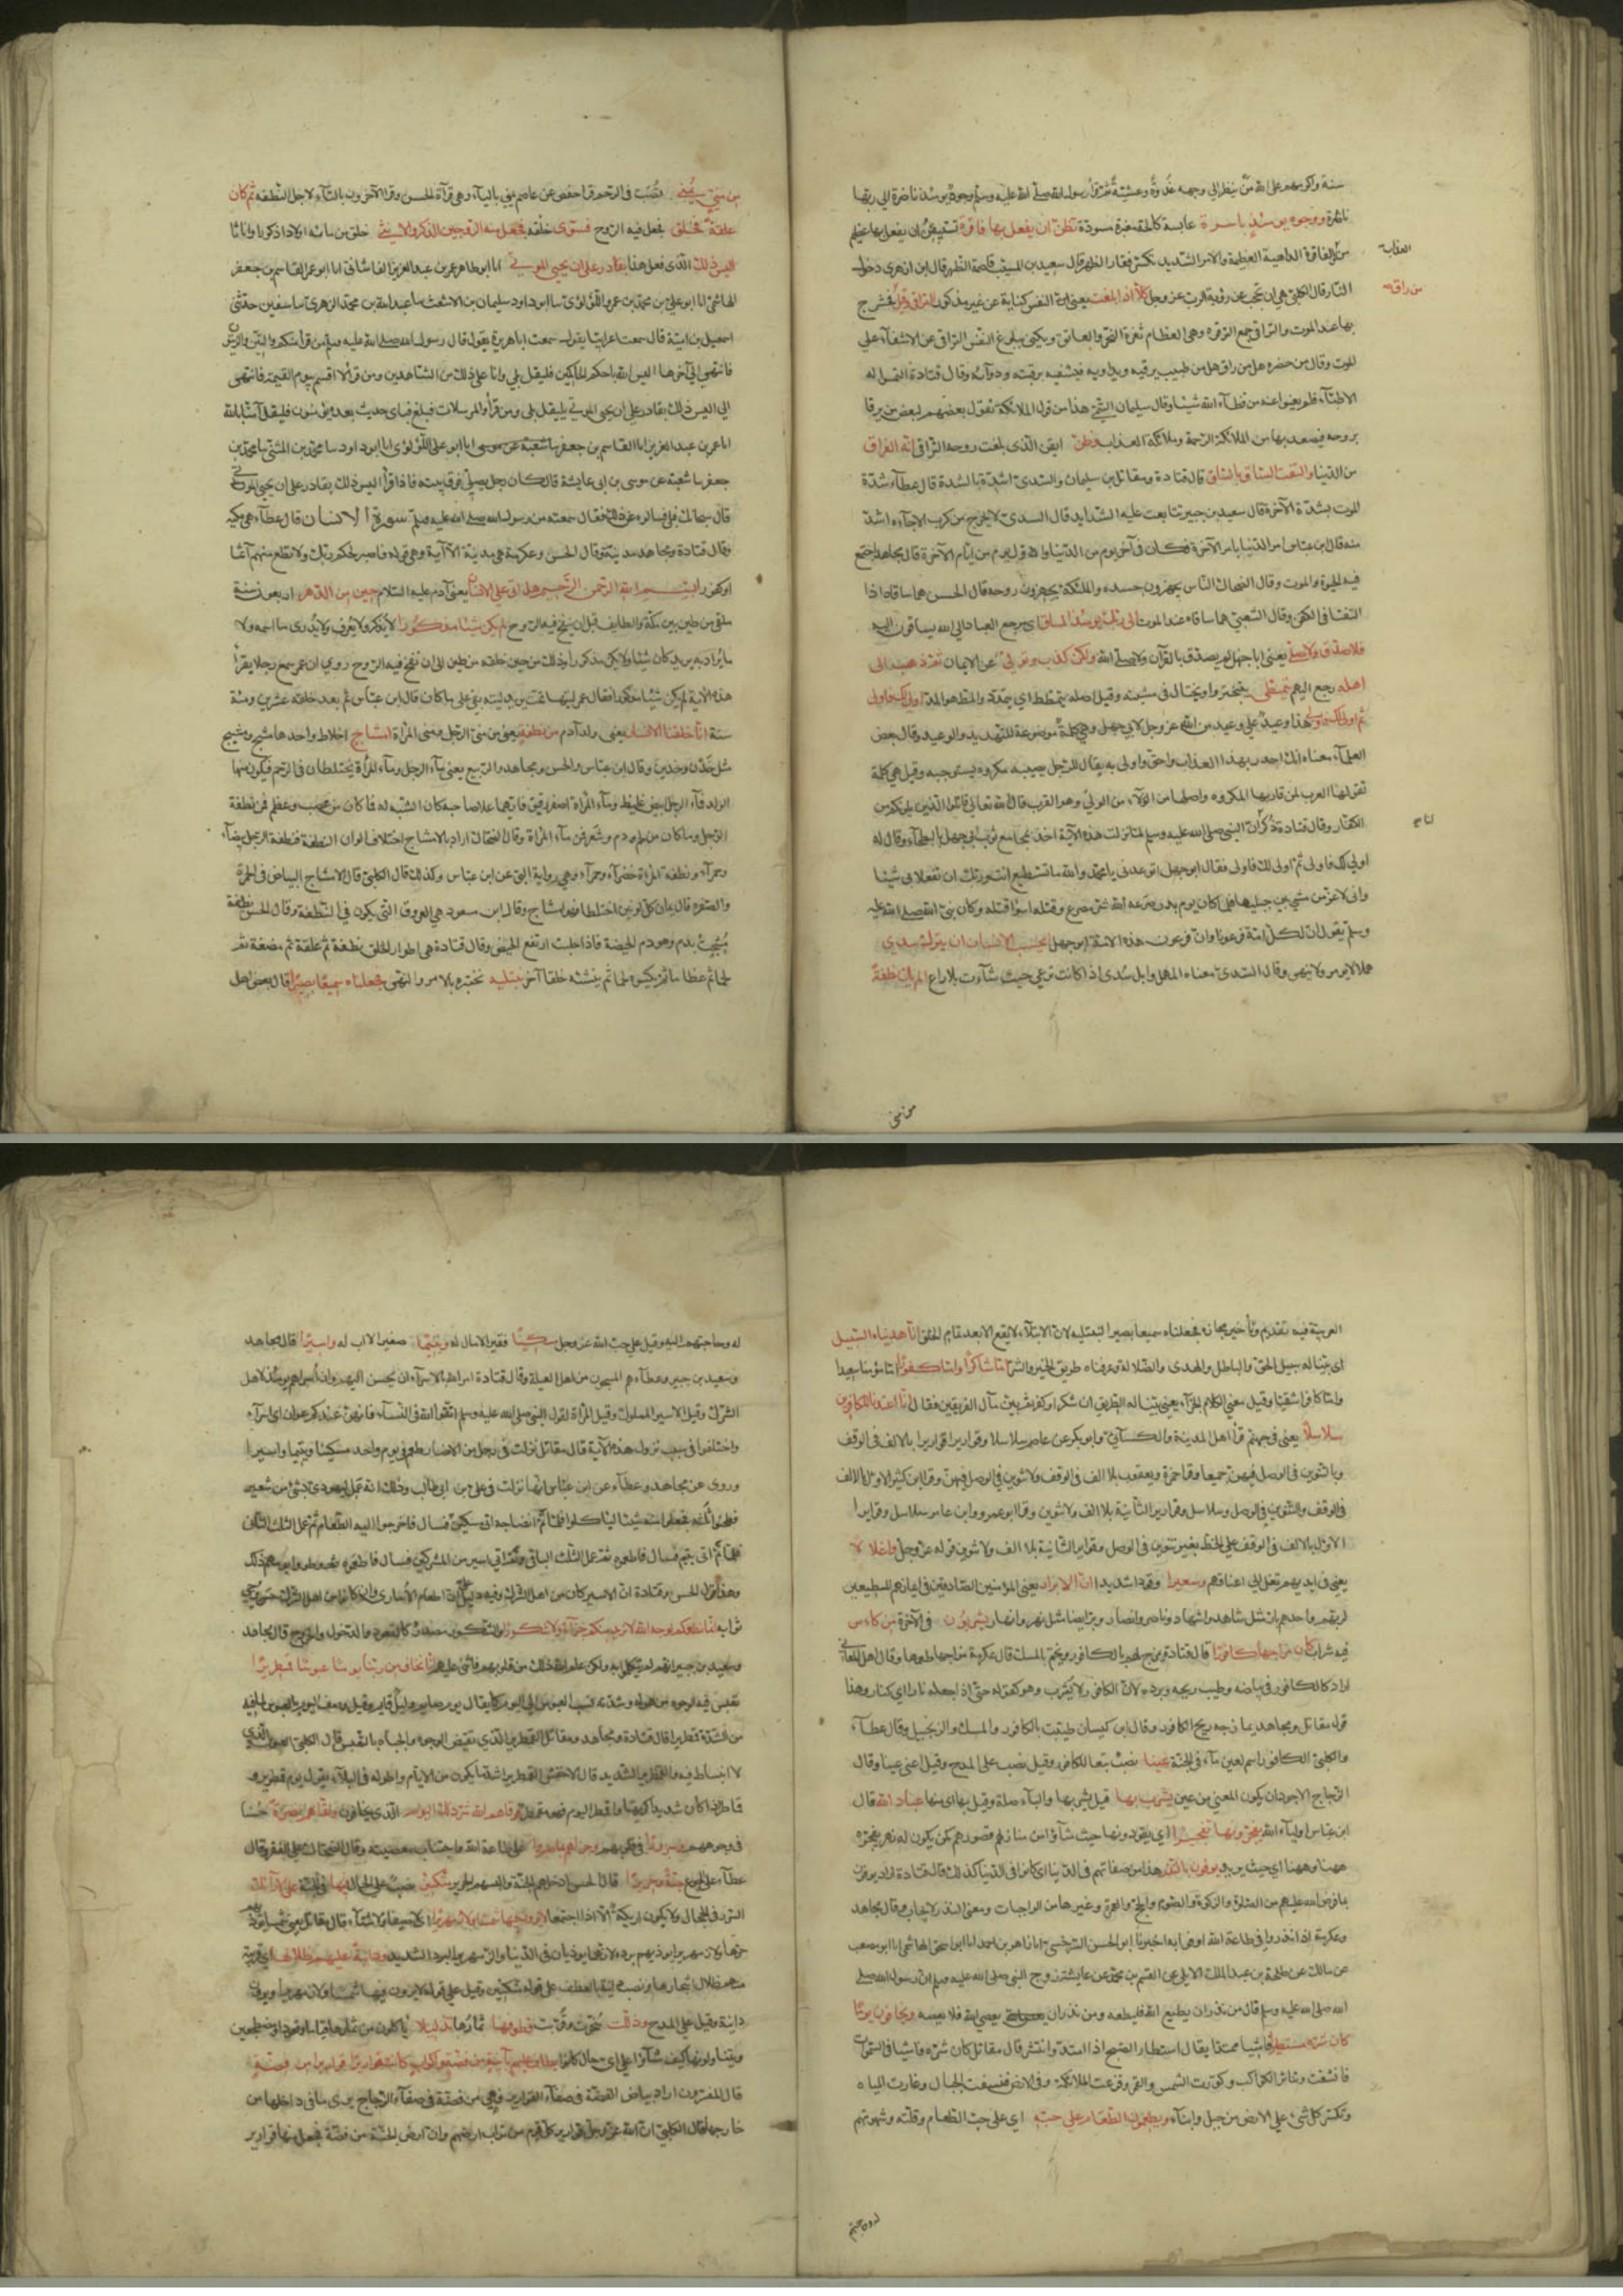 سنة واكرمهم على الله من ينظر الى وجهه غدوة وعشية ثم قرأ رسول الله صلى الله عليه وسلم وجوه يومئذ ناضرة الى ربها
ناظرة ووجوه يومئذ باسرة عابسة كالحة مغبرة مسودة تظن ان يفعل بها فاقرة تستيقن ان يفعل بها عظيم
من العذاب
الفاقرة الداهية العظيمة والامر الشديد يكسر فقار الظهر قال سعيد بن المسيب قاصمة الظهر قال ابن زيد هي دخول
النار قال الكلبي هي ان تحجب عن رؤية الرب عز وجل كلا اذا بلغت يعني النفس كناية عن غير مذكور التراقي وقيل
من راق
بها عند الموت والتراقي جمع الترقوة وهي العظام بين ثغرة النحر والعاتق ويكنى ببلوغ النفس التراقي عن الاشفاء على
الموت وقال من حضره هل من راق هل من طبيب يرقيه ويداويه فيشفيه برقيته ودوائه وقال قتادة التمسوا له
الاطباء فلم يغنوا عنه من قضاء الله شيئا وقال سليمان التيمي هذا من قول الملائكة يقول بعضهم لبعض من يرقا
بروحه فيصعد بها من الملائكة الرحمة وملائكة العذاب وظن ايقن الذي بلغت روحه التراقي انه الفراق
من الدنيا والتفت الساق بالساق قال قتادة ومقاتل بن سليمان والسدي الشدة بالشدة قال عطاء شدة
الموت بشدة الآخرة قال سعيد بن جبير تتابعت عليه الشدايد قال السدي لا يخرج من كرب الا جاءه اشد
منه قال ابن عباس امر الدنيا بامر الآخرة فكان في آخر يوم من الدنيا واول يوم من ايام الآخرة قال مجاهد اجتمع
فيه الحيوة والموت وقال الضحاك الناس يجهزون جسده والملئكة يجهزون روحه قال الحسن هما ساقاه اذا
التفتا في الكفن وقال الشعبي هما ساقاه عند الموت الى ربك يومئذ المساق اي مرجع العباد الى الله يساقون اليه
فلا صدق ولا صلى يعني ابا جهل لم يصدق بالقرآن ولا صلى الله ولكن كذب وتولى عن الايمان ثم ذهب الى
اهله رجع اليهم يتمطى يتبختر ويختال في مشيته وقيل اصله يتمطط اي يتمدد والمط هو المد اولى لك فاولى
ثم اولى لك فاولى هذا وعيد على وعيد من الله عز وجل لابي جهل وهي كلمة موضوعة للتهديد والوعيد وقال بعض
العلماء معناه انك اجدر بهذا العذاب واحق واولى به يقال للرجل يصيبه مكروه يستوجبه وقيل هي كلمة
تقولها العرب لمن قاربها المكروه واصلها من الولاء من الولي وهو القرب قال الله تعالى قاتلوا الذين يلونكم من
الكفار وقال قتادة ذكر ان النبي صلى الله عليه وسلم لما نزلت هذه الآية اخذ بمجامع ثوب ابي جهل بالبطحاء وقال له
اولى لك فاولى ثم اولى لك فاولى فقال ابو جهل اتوعدني يا محمد والله ما تستطيع انت وربك ان تفعلا بي شيئا
واني لاعز من مشى بين جبليها فلما كان يوم بدر صرعه الله شر مصرع وقتله اسوا قتله وكان نبي الله صلى الله عليه
وسلم يقول ان لكل امة فرعونا وان فرعون هذه الامة ابو جهل ايحسب الانسان ان يترك سدى
هملا لا يومر ولا ينهى وقال السدي معناه المهمل وابل سدى اذا كانت ترعى حيث شاءت بلا راع الم يك نطفة
من مني
من مني يمنى تصب في الرحم قرأ حفص عن عاصم يمنى بالياء وهي قرآة الحسن وقرأ الآخرون بالتاء لاجل النطفه ثم كان
علقة فخلق فجعل فيه الروح فسوى خلقه فجعل منه الزوجين الذكر والانثى خلق من مائه اولادا ذكورا واناثا
اليس ذلك الذي فعل هذا بقادر على ان يحيي الموتى انا ابو طاهر عمر بن عبد العزيز القاشاني انا ابو عمر القاسم بن جعفر
الهاشمي انا ابو علي بن محمد بن عمرو اللؤلؤي سا ابو داود سليمان بن الاشعث سا عبد الله بن محمد الزهري سا سفين حدثني
اسمعيل بن امية قال سمعت اعرابيا يقول سمعت ابا هريرة يقول قال رسول الله صلى الله عليه وسلم من قرأ منكم والتين والزيتون
فانتهى الى آخرها اليس الله باحكم الحاكمين فليقل بلى وانا على ذلك من الشاهدين ومن قرأ لا اقسم بيوم القيمة فانتهى
الى اليس ذلك بقادر على ان يحيي الموتى فليقل بلى ومن قرأ والمرسلات فبلغ فباي حديث بعده يؤمنون فليقل آمنا بالله
انا عمر بن عبد العزيز انا القاسم بن جعفر انا ابو علي اللؤلؤي انا ابو داود سا محمد بن المثنى سا محمد بن
جعفر سا شعبة عن موسى بن ابي عايشة قال كان رجل يصلي فوق بيته فاذا قرأ اليس ذلك بقادر على ان يحيي الموتى
قال سبحانك فبلى فسالوه عن ذلك فقال سمعته من رسول الله صلى الله عليه وسلم سورة الانسان قال عطاء هي مكية
وقال قتادة ومجاهد مدنية وقال الحسن وعكرمة هي مدنية الا آية وهي قوله فاصبر لحكم ربك ولا تطع منهم آثما
او كفورا بسم الله الرحمن الرحيم هل اتى على الانسان يعني آدم عليه السلام حين من الدهر اربعون سنة
ملقى من طين بين مكة والطايف قبل ان ينفخ فيه الروح لم يكن شيئا مذكورا لا يذكر ولا يعرف ولا يدرى ما اسمه ولا
ما يراد به يريد كان شيئا ولم يكن مذكورا وذلك من حين خلقه من طين الى ان نفخ فيه الروح روي ان عمر سمع رجلا يقرأ
هذه الآية لم يكن شيئا مذكورا فقال عمر ليتها تمت يريد ليته بقي على ما كان قال ابن عباس ثم بعد خلقه عشرين ومئة
سنة انا خلقنا الانسان يعني ولد آدم من نطفة يعني من مني الرجل ومني المرأة امشاج اخلاط واحدها مشج ومشيج
مثل خدن وخدين وقال ابن عباس والحسن ومجاهد والربيع يعني ماء الرجل وماء المرأة يختلطان في الرحم فيكون منها
الولد فماء الرجل ابيض غليظ وماء المرأة اصفر رقيق فايهما علا صاحبه كان الشبه له فما كان من عصب وعظم فمن نطفة
الرجل وما كان من لحم ودم وشعر فمن ماء المرأة وقال الضحاك اراد بالامشاج اختلاف الوان النطفة فنطفة الرجل بيضاء
وحمراء ونطفة المرأة خضراء وحمراء وهي رواية عن ابن عباس وكذلك قال الكلبي قال الامشاج البياض في الحمرة
والصفره قال يمان كل لونين اختلطا فهو امشاج وقال ابن مسعود هي العروق التي تكون في النطفة وقال الحسن نطفة
مشجت بدم وهو دم الحيضة فاذا حبلت ارتفع الحيض وقال قتادة هي اطوار الخلق نطفة ثم علقة ثم مضغة ثم
لحما ثم عظاما ثم يكسوه لحما ثم ينشئه خلقا آخر نبتليه نختبره بالامر والنهي فجعلناه سميعا بصيرا قال بعض اهل
العربية فيه تقديم وتأخير مجازه فجعلناه سميعا بصيرا لنبتليه لان الابتلاء لا يقع الا بعد تمام الخلق انا هديناه السبيل
اي بينا له سبيل الحق والباطل والهدى والضلالة وعرفناه طريق الخير والشر اما شاكرا واما كفورا اما مؤمنا سعيدا
واما كافرا شقيا وقيل معنى الكلام الجزاء يعني بينا له الطريق ان شكر او كفر ثم بين مآل الفريقين فقال انا اعتدنا للكافرين
سلاسلا يعني في جهنم قرأ اهل المدينة والكسائي وابو بكر عن عاصم سلاسلا وقواريرا قواريرا بالالف في الوقف
وبالتنوين في الوصل فيهن جميعا وقرأ حمزة ويعقوب بلا الف في الوقف ولا تنوين في الوصل فيهن وقرأ ابن كثير الاولى بالالف
في الوقف والتنوين في الوصل وسلاسل وقوارير الثانية بلا الف ولا تنوين وقرأ ابو عمرو وابن عامر سلاسل وقواريرا
الاول بالالف في الوقف على الخط بغير تنوين في الوصل وقوارير الثانية بلا الف ولا تنوين قوله عز وجل واغلالا
يعني في ايديهم تغل الى اعناقهم وسعيرا وقودا شديدا ان الابرار يعني المؤمنين الصادقين في ايمانهم المطيعين
لربهم واحدهم بار مثل شاهد واشهاد وناصر وانصار وبر ايضا مثل نهر وانهار يشربون في الآخرة من كاس
فيه شراب كان مزاجها كافورا قال قتادة يمزج لهم بالكافور ويختم بالمسك قال عكرمة مزاجها طعمها وقال اهل المعاني
اراد كالكافور في بياضه وطيب ريحه وبرده لان الكافور لا يشرب وهو كقوله حتى اذا جعله نارا اي كنار وهذا
قول مقاتل ومجاهد يمازجه ريح الكافور وقال ابن كيسان طيبت بالكافور والمسك والزنجبيل وقال عطاء
والكلبي الكافور اسم لعين ماء في الجنة عينا نصب تبعا للكافور وقيل نصب على المدح وقيل اعني عينا وقال
الزجاج الاجود ان يكون المعنى من عين يشرب بها قيل يشربها والباء صلة وقيل بها اي منها عباد الله قال
ابن عباس اولياء الله يفجرونها تفجيرا اي يقودونها حيث شاؤا من منازلهم وقصورهم كمن يكون له نهر يفجره
ههنا وههنا اي حيث يريد يوفون بالنذر هذا من صفاتهم في الدنيا اي كانوا في الدنيا كذلك قال قتادة اراد يوفون
بما فرض الله عليهم من الصلوة والزكوة والصوم والحج والعمرة وغيرها من الواجبات ومعنى النذر الايجاب وقال مجاهد
وعكرمة اذا نذروا في طاعة الله اوفوا به اخبرنا ابو الحسن السرخسي انا زاهر بن احمد انا ابو اسحق الهاشمي انا ابو مصعب
عن مالك عن طلحة بن عبد الملك الايلي عن القسم بن محمد عن عايشة زوج النبي صلى الله عليه وسلم ان رسول الله صلى
الله صلى الله عليه وسلم قال من نذر ان يطيع الله فليطعه ومن نذر ان يعصي الله فلا يعصه ويخافون يوما
كان شره مستطيرا فاشيا ممتدا يقال استطار الصبح اذا امتد وانتشر قال مقاتل كان شره فاشيا في السموات
فانشقت وتناثر الكواكب وكورت الشمس والقمر وفزعت الملائكة وفي الارض فنسفت الجبال وغارت المياه
وتكسر كل شئ على الارض من جبل وابناء ويطعمون الطعام على حبه اي على حب الطعام وقلته وشهوتهم
له وحاجتهم اليه وقيل على حب الله عز وجل مسكينا فقيرا لا مال له ويتيما صغيرا لا اب له واسيرا قال مجاهد
وسعيد بن جبير وعطاء هو المسجون من اهل القبلة وقال قتادة امر الله بالاسراء ان يحسن اليهم وان اسراهم يومئذ لاهل
الشرك وقيل الاسير المملوك وقيل المرأة لقول النبي صلى الله عليه وسلم اتقوا الله في النساء فانهن عندكم عوان اي اسراء
واختلفوا في سبب نزول هذه الآية قال مقاتل نزلت في رجل من الانصار اطعم في يوم واحد مسكينا ويتيما واسيرا
وروي عن مجاهد وعطاء عن ابن عباس انها نزلت في علي بن ابي طالب وذلك انه عمل ليهودي بشئ من شعير
فطحنوا ثلثه فجعلوا منه شيئا لياكلوا فلما تم انضاجه اتى مسكين فسال فاخرجوا اليه الطعام ثم عمل الثلث الثاني
فلما تم اتى يتيم فسال فاطعموه ثم عمل الثلث الباقي فلما تم اتى اسير من المشركين فسال فاطعموه وطووا يومهم ذلك
وهذا قول الحسن وقتادة ان الاسير كان من اهل الشرك وفيه دليل على ان اطعام الاسارى وان كانوا من اهل الشرك حسن يرجى
ثوابه انما نطعمكم لوجه الله لا نريد منكم جزاء ولا شكورا والشكور مصدر كالقعود والدخول والخروج قال مجاهد
وسعيد بن جبير انهم لم يتكلموا به ولكن علم الله ذلك من قلوبهم فاثنى عليهم انا نخاف من ربنا يوما عبوسا قمطريرا
تعبس فيه الوجوه من هوله وشدته نسب العبوس الى اليوم كما يقال يوم صايم وليل قايم وقيل وصف اليوم بالعبوس لما فيه
من الشدة قمطريرا قال قتادة ومجاهد ومقاتل القمطرير الذي يقبض الوجوه والجباه بالتعبيس قال الكلبي العبوس الذي
لا انبساط فيه والقمطرير الشديد قال الاخفش القمطرير اشد ما يكون من الايام واطوله في البلاء يقول يوم قمطرير و
قماطر اذا كان شديدا كريها فوقاهم الله شر ذلك اليوم الذي يخافون ولقاهم نضرة حسنا
في وجوههم وسرورا في قلوبهم وجزاهم بما صبروا على طاعة الله واجتناب معصيته وقال الضحاك على الفقر وقال
عطاء على الجوع جنة وحريرا قال الحسن ادخلهم الجنة والبسهم الحرير متكئين نصب على الحال فيها في الجنة على الارائك
السرر في الحجال ولا يكون اريكة الا اذا اجتمعا لا يرون فيها شمسا ولا زمهريرا اي لا صيفا ولا شتاء قال مقاتل يعني شمسا يؤذيهم
حرها ولا زمهريرا يؤذيهم برده لانهما يؤذيان في الدنيا والزمهرير البرد الشديد ودانية عليهم ظلالها اي قريبة
منهم ظلال اشجارها ونصب دانية بالعطف على قوله متكئين وقيل على قوله لا يرون فيها شمسا ولا زمهريرا ويرون
دانية وقيل على المدح وذللت سخرت وقربت قطوفها ثمارها تذليلا ياكلون من ثمارها قياما وقعودا ومضطجعين
ويتناولونها كيف شاؤا على اي حال كانوا ويطاف عليهم بآنية من فضة واكواب كانت قواريرا قوارير من فضة
قال المفسرون اراد بياض الفضة في صفاء القوارير فهي من فضة في صفاء الزجاج يرى ما في داخلها من
خارجها قال الكلبي ان الله عز وجل جعل قوارير كل قوم من تراب ارضهم وان ارض الجنة من فضة فجعل منها قوارير